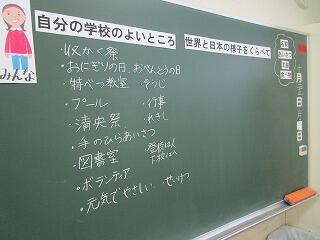 自分の学校のよいところ
世界と日本の様子をくらべて
みんな
・収かく祭
・おにぎりの日、おべんとうの日
・特べつ教室 ・そうじ
・プール ・行事
・清央祭 ・れきし
・手のひらあいさつ
・図書室 ・登校はん
下校はん
・ボランティア
・元気でやさしい ・せいけつ
月
日
曜日